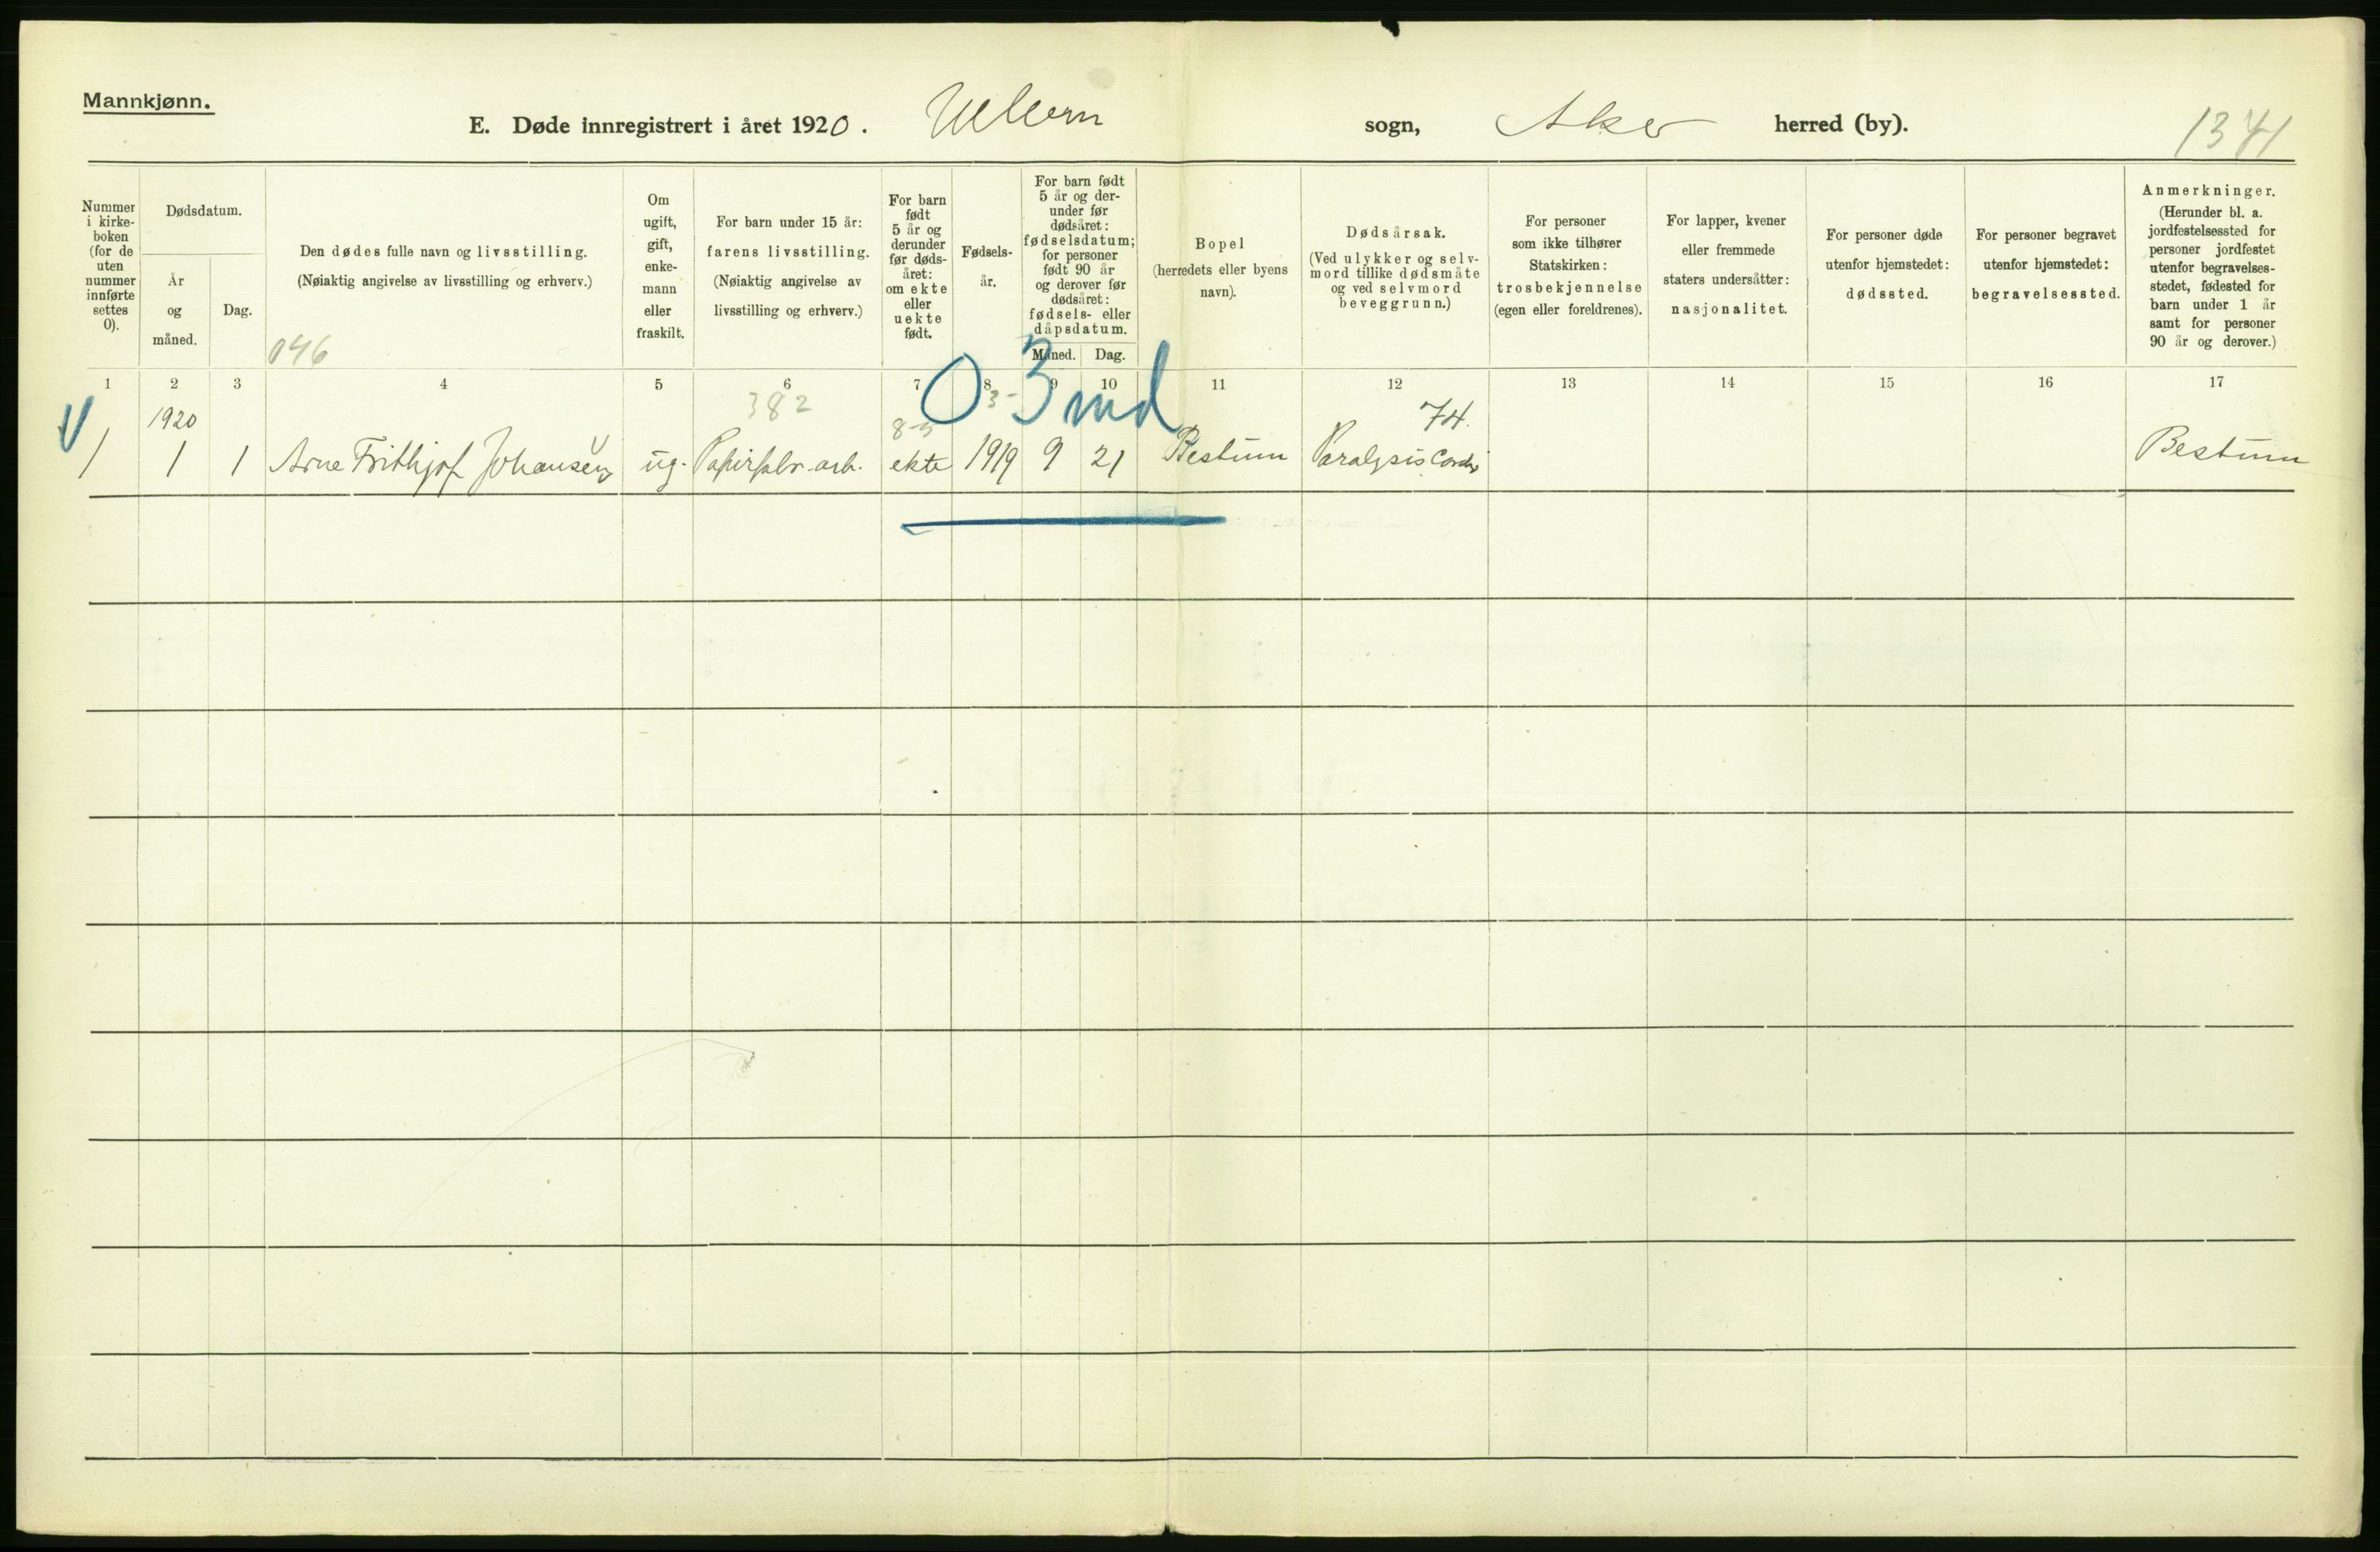 Mannkjønn.
E. Døde innregistrert i året 1920. Ullern sogn, Aker herred (by). 1341
Nummer i kirke-boken (for de uten nummer innførte settes 0).
Dødsdatum.
År og måned.
Dag.
Den dødes fulle navn og livsstilling.
(Nøiaktig angivelse av livsstilling og erhverv.)
046
Om ugift, gift, enke-mann eller fraskilt.
For barn under 15 år:
farens livsstilling.
(Nøiaktig angivelse av livsstilling og erhverv.)
For barn født 5 år og derunder før døds-året: om ekte eller uekte født.
Fødsels-år.
For barn født 5 år og der-under før dødsåret: fødselsdatum; for personer født 90 år og derover før dødsåret: fødsels- eller dåpsdatum.
Måned. Dag.
Bopel
(herredets eller byens navn).
Dødsårsak.
(Ved ulykker og selv-mord tillike dødsmåte og ved selvmord beveggrunn.)
For personer som ikke tilhører Statskirken:
trosbekjennelse
(egen eller foreldrenes).
For lapper, kvener eller fremmede staters undersåtter:
nasjonalitet.
For personer døde utenfor hjemstedet:
dødssted.
For personer begravet utenfor hjemstedet:
begravelsessted.
Anmerkninger.
(Herunder bl. a. jordfestelsessted for personer jordfestet utenfor begravelses-stedet, fødested for barn under 1 år samt for personer 90 år og derover.)
1 2 3 4 5 6 7 8 9 10 11 12 13 14 15 16 17
1920 382 8-3 3- 0 3 md 74.
1 1 1 Arne Frithjof Johansen ug. Papirfabr. arb. ekte 1919 9 21 Bestum Paralysis Cordis Bestum